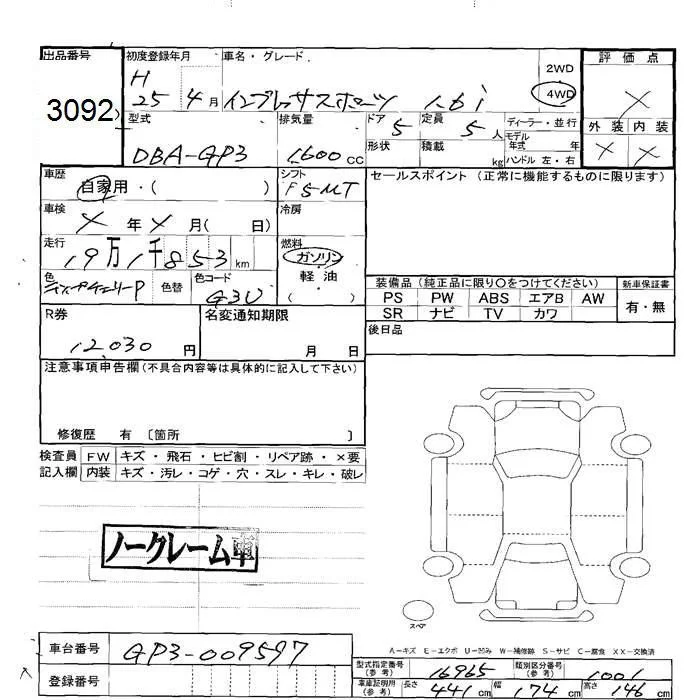 出品番号 初度登録年月 車名・グレード 2WD 評価点
3092 H 25 4月 インプレッサスポーツ 1.6i 4WD ×
外装 内装
× ×
型式 排気量 ドア 5 定員 5人 ディーラー・並行
DBA-GP3 1,600cc 形状 積載 kg モデル年式 年
ハンドル 左・右
車歴 シフト セールスポイント (正常に機能するものに限ります)
自家用・( ) F5MT
車検 冷房
×年×月( 日)
走行 燃料
19万1千853km ガソリン
軽・油
( )
色 色替 色コード 装備品 (純正品に限り○をつけてください) 新車保証書
G3U PS PW ABS エアB AW 有・無
SR ナビ TV カワ
R券 名変通知期限 後日品
12,030円 月 日
注意事項申告欄(不具合内容等は具体的に記入して下さい)
修復歴 有 〔箇所 〕
検査員 FW キズ・飛石・ヒビ割・リペア跡・×要
記入欄 内装 キズ・汚レ・コゲ・穴・スレ・キレ・破レ
ノークレーム車
スペア
A−キズ E−エクボ U−凹み W−補修跡 S−サビ C−腐食 XX−交換済
車台番号 GP3-009597
登録番号
型式指定番号(参考) 16965 類別区分番号(参考) 1001
車庫証明用(参考) 長さ 441cm 幅 174cm 高さ 146cm